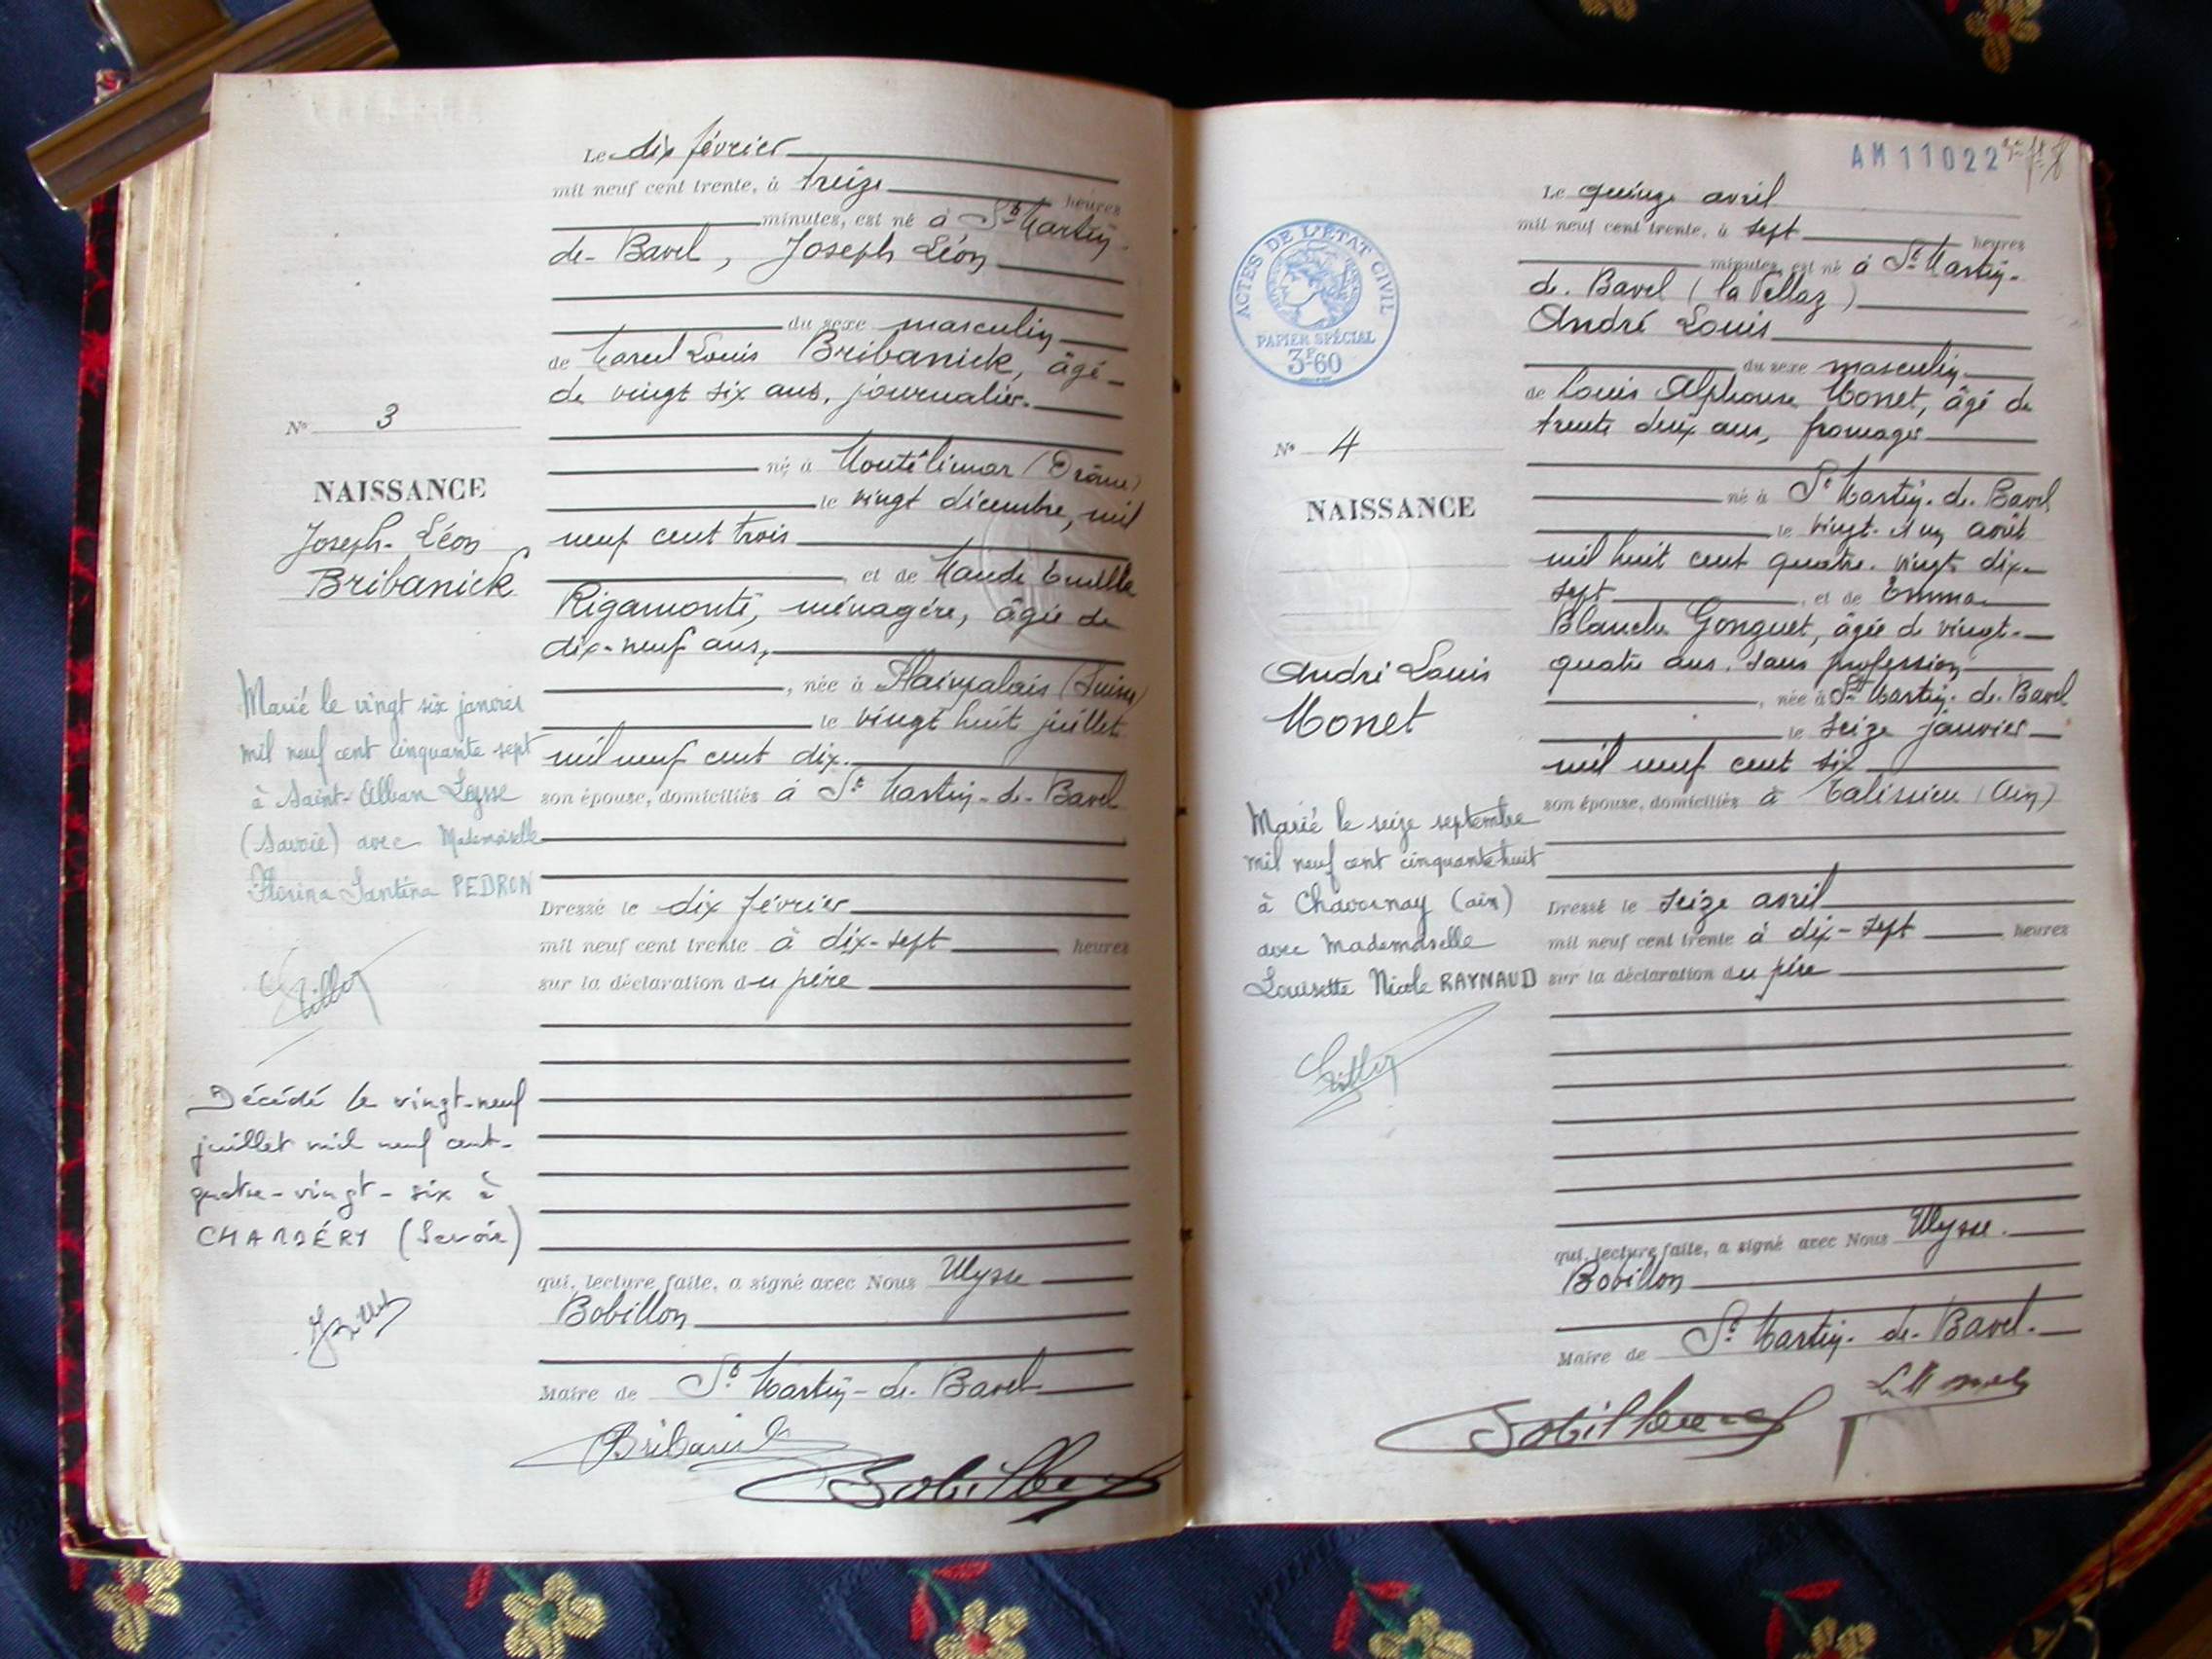 Le dix février
mil neuf cent trente, à treize heures
minutes, est né à St Martin-
de-Bavel, Joseph Léon
du sexe masculin
de Marcel Louis Bribanick, âgé
de vingt six ans, journalier.
né à Montélimar (Drôme)
le vingt décembre, mil
neuf cent trois
, et de Maude
Rigamonti, ménagère, âgée de
dix-neuf ans,
, née à (Suisse)
le vingt huit juillet
mil neuf cent dix.
son épouse, domiciliés à St Martin-de-Bavel
Dressé le dix février
mil neuf cent trente à dix-sept heures
sur la déclaration du père
qui, lecture faite, a signé avec Nous Ulysse
Bobillon
Maire de St Martin-de-Bavel
No 3
NAISSANCE
Joseph-Léon
Bribanick
Marié le vingt six janvier
mil neuf cent cinquante sept
à Saint-Alban Leysse
(Savoie) avec Mademoiselle
Santina PEDRON
Décédé le vingt-neuf
juillet mil neuf cent-
quatre-vingt-six à
CHAMBÉRY (Savoie)
AM11022
Le quinze avril
mil neuf cent trente, à sept heures
minutes, est né à St Martin-
de-Bavel (la Vellaz)
André Louis
du sexe masculin
de Louis Alphonse Monet, âgé de
trente deux ans, fromager
né à St Martin-de-Bavel
le vingt-et un août
mil huit cent quatre-vingt dix-
sept, et de Emma
Blanche Gonguet, âgée de vingt-
quatre ans, sans profession
, née à St Martin-de-Bavel
le seize janvier
mil neuf cent six
son épouse, domiciliés à Talissieu (Ain)
Dressé le seize avril
mil neuf cent trente à dix-sept heures
sur la déclaration du père
qui, lecture faite, a signé avec Nous Ulysse
Bobillon
Maire de St Martin-de-Bavel
ACTES DE L'ÉTAT CIVIL
PAPIER SPÉCIAL
3F60
No 4
NAISSANCE
André Louis
Monet
Marié le seize septembre
mil neuf cent cinquante huit
à Chavornay (ain)
avec Mademoiselle
Louisette Nicole RAYNAUD